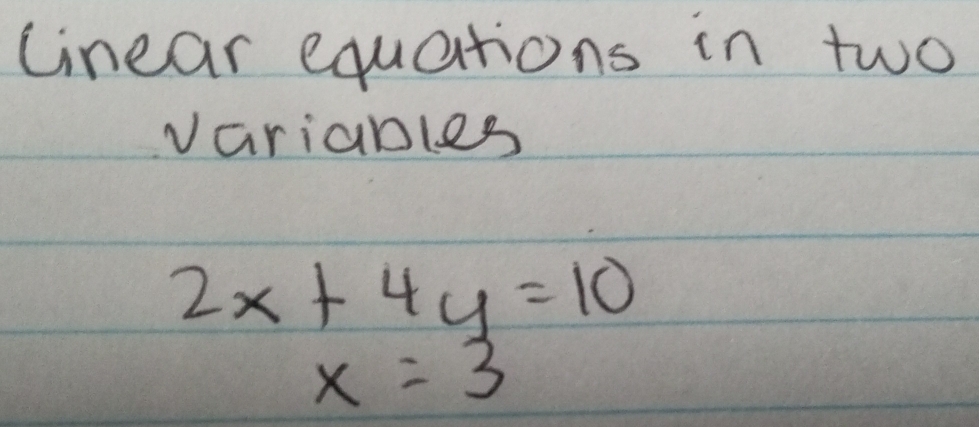 Linear equations in two
variables
2x + 4y = 10
x = 3